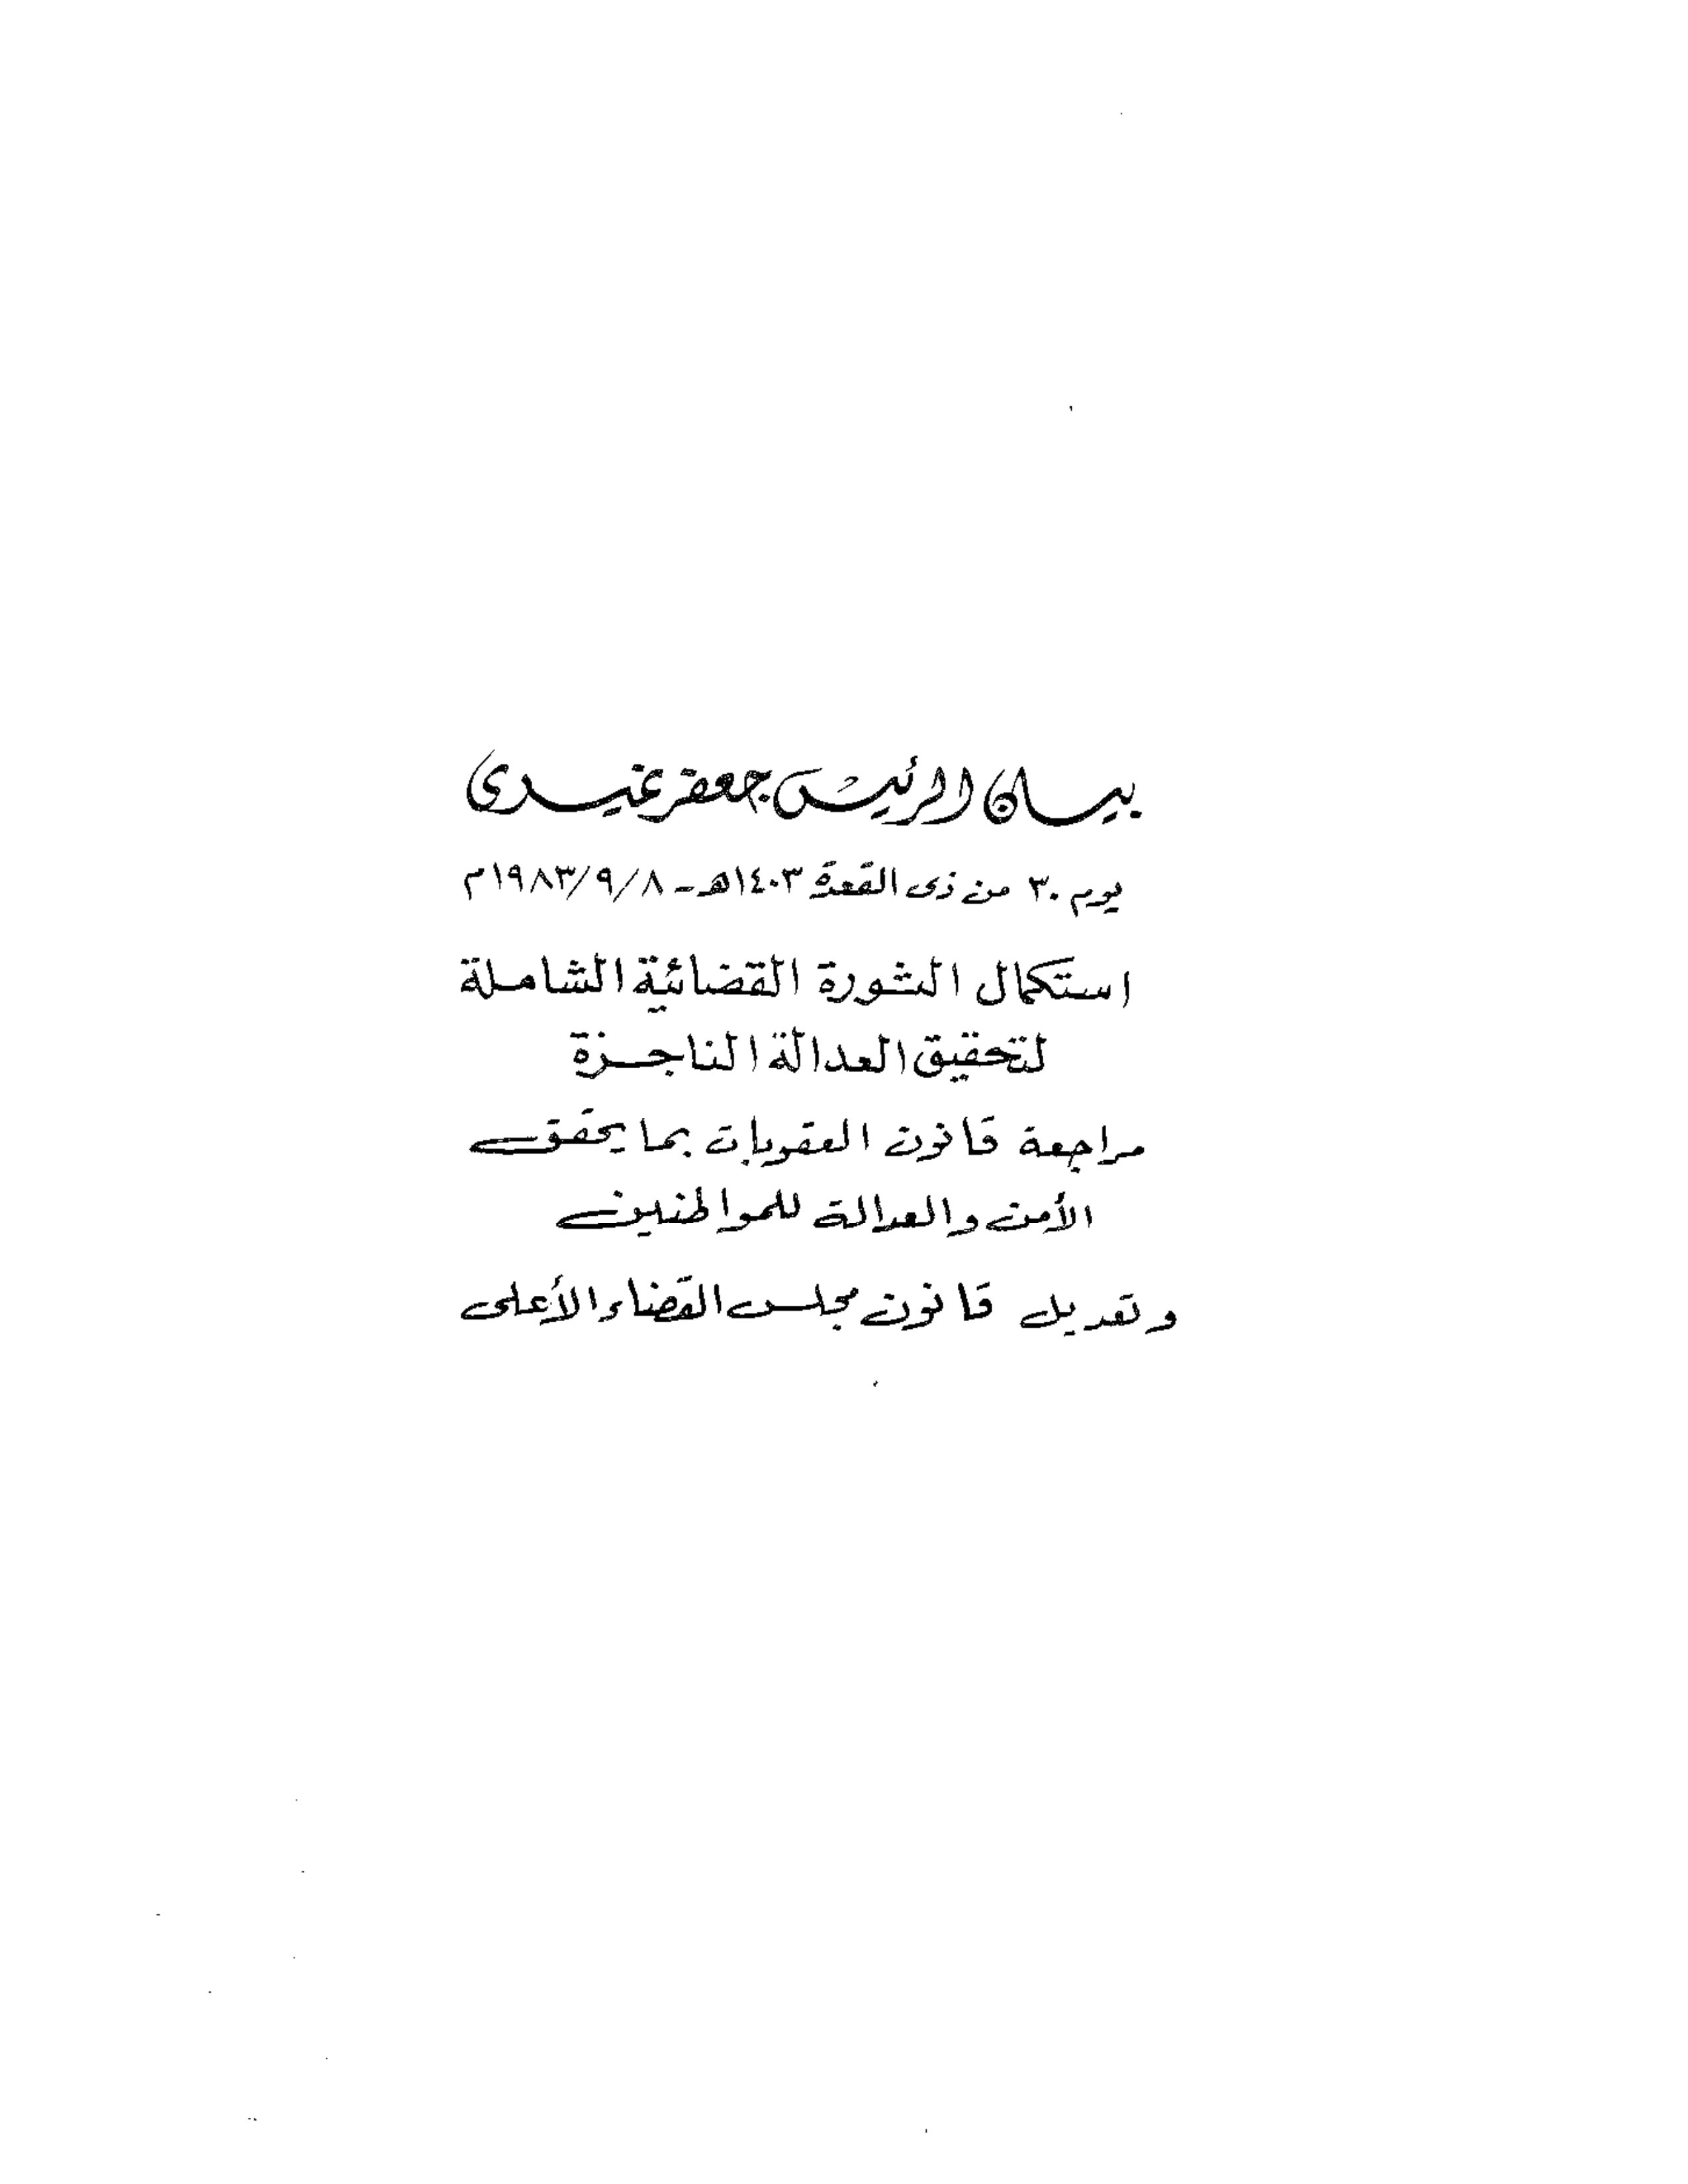 بيان الرئيس جعفر نميرى
يوم ٣٠ من ذى القعدة ١٤٠٣هـ - ١٩٨٣/٩/٨م
استكمال الثورة القضائية الشاملة
لتحقيق العدالة الناجزة
مراجعة قانون العقوبات بما يحقق
الأمن والعدالة للمواطنين
وتعديل قانون مجلس القضاء الأعلى